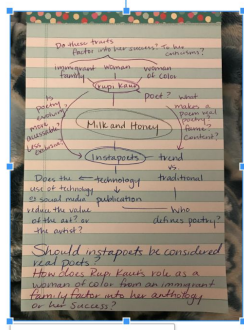 Do these traits
factor into her success? To her
criticisms?
immigrant woman woman
family of color
Rupi Kaur
poet?
Is
poetry
evolving?
more
accessible?
Less
What
makes a
poem real
poetry?
fame?
Content?
Milk and Honey
Instapoets
trend
vs
traditional
Does the technology
use of technology
social media publication
reduce the value
of the art? or
the artist?
who
defines poetry?
Should instapoets be considered
real poets?
How does Rupi Kaur's role as a
woman of color from an immigrant
family factor into her anthology
or her success?